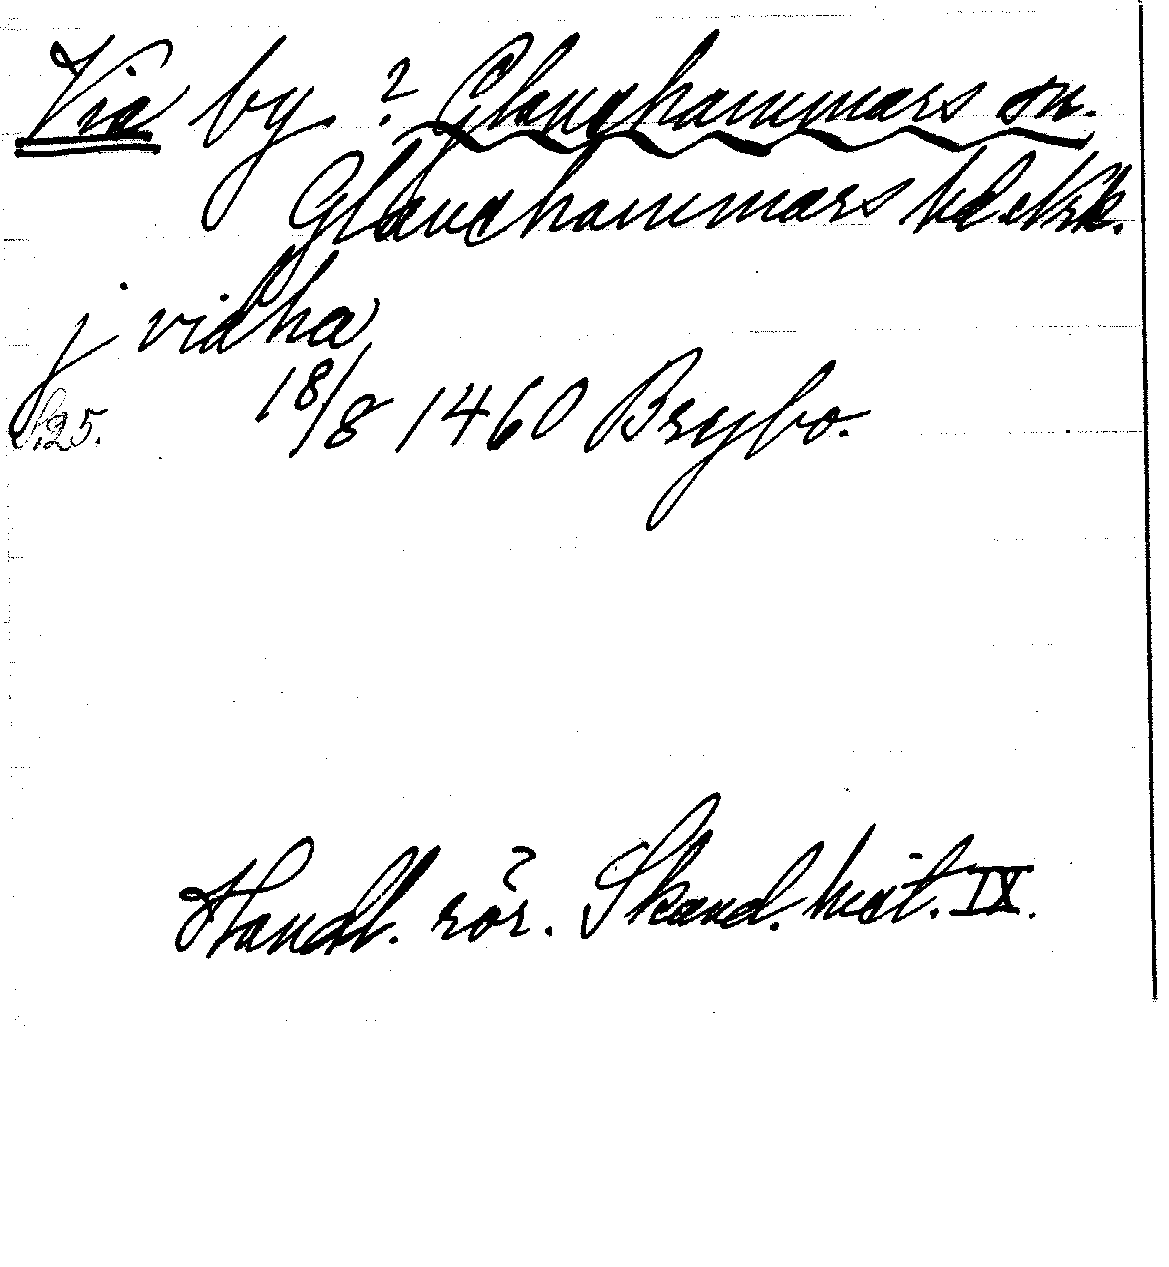 Via by. ? Glanshammars sn.
Glanshammars hd Nrk.
j vidha
S. 25. 18/8 1460 Brybo.
Handl. rör. Skand. hist. IX.